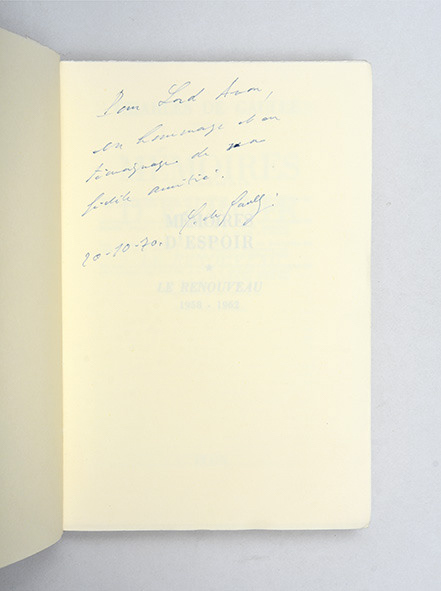 Pour Lord Avon,
en hommage et en
témoignage de ma
fidèle amitié.
C. de Gaulle.
20-10-70.
MÉMOIRES
D'ESPOIR
LE RENOUVEAU
1958 - 1962